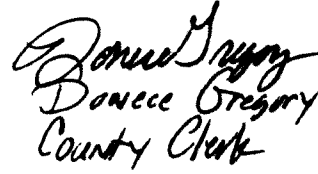 Donece Gregory
Donece Gregory
County Clerk